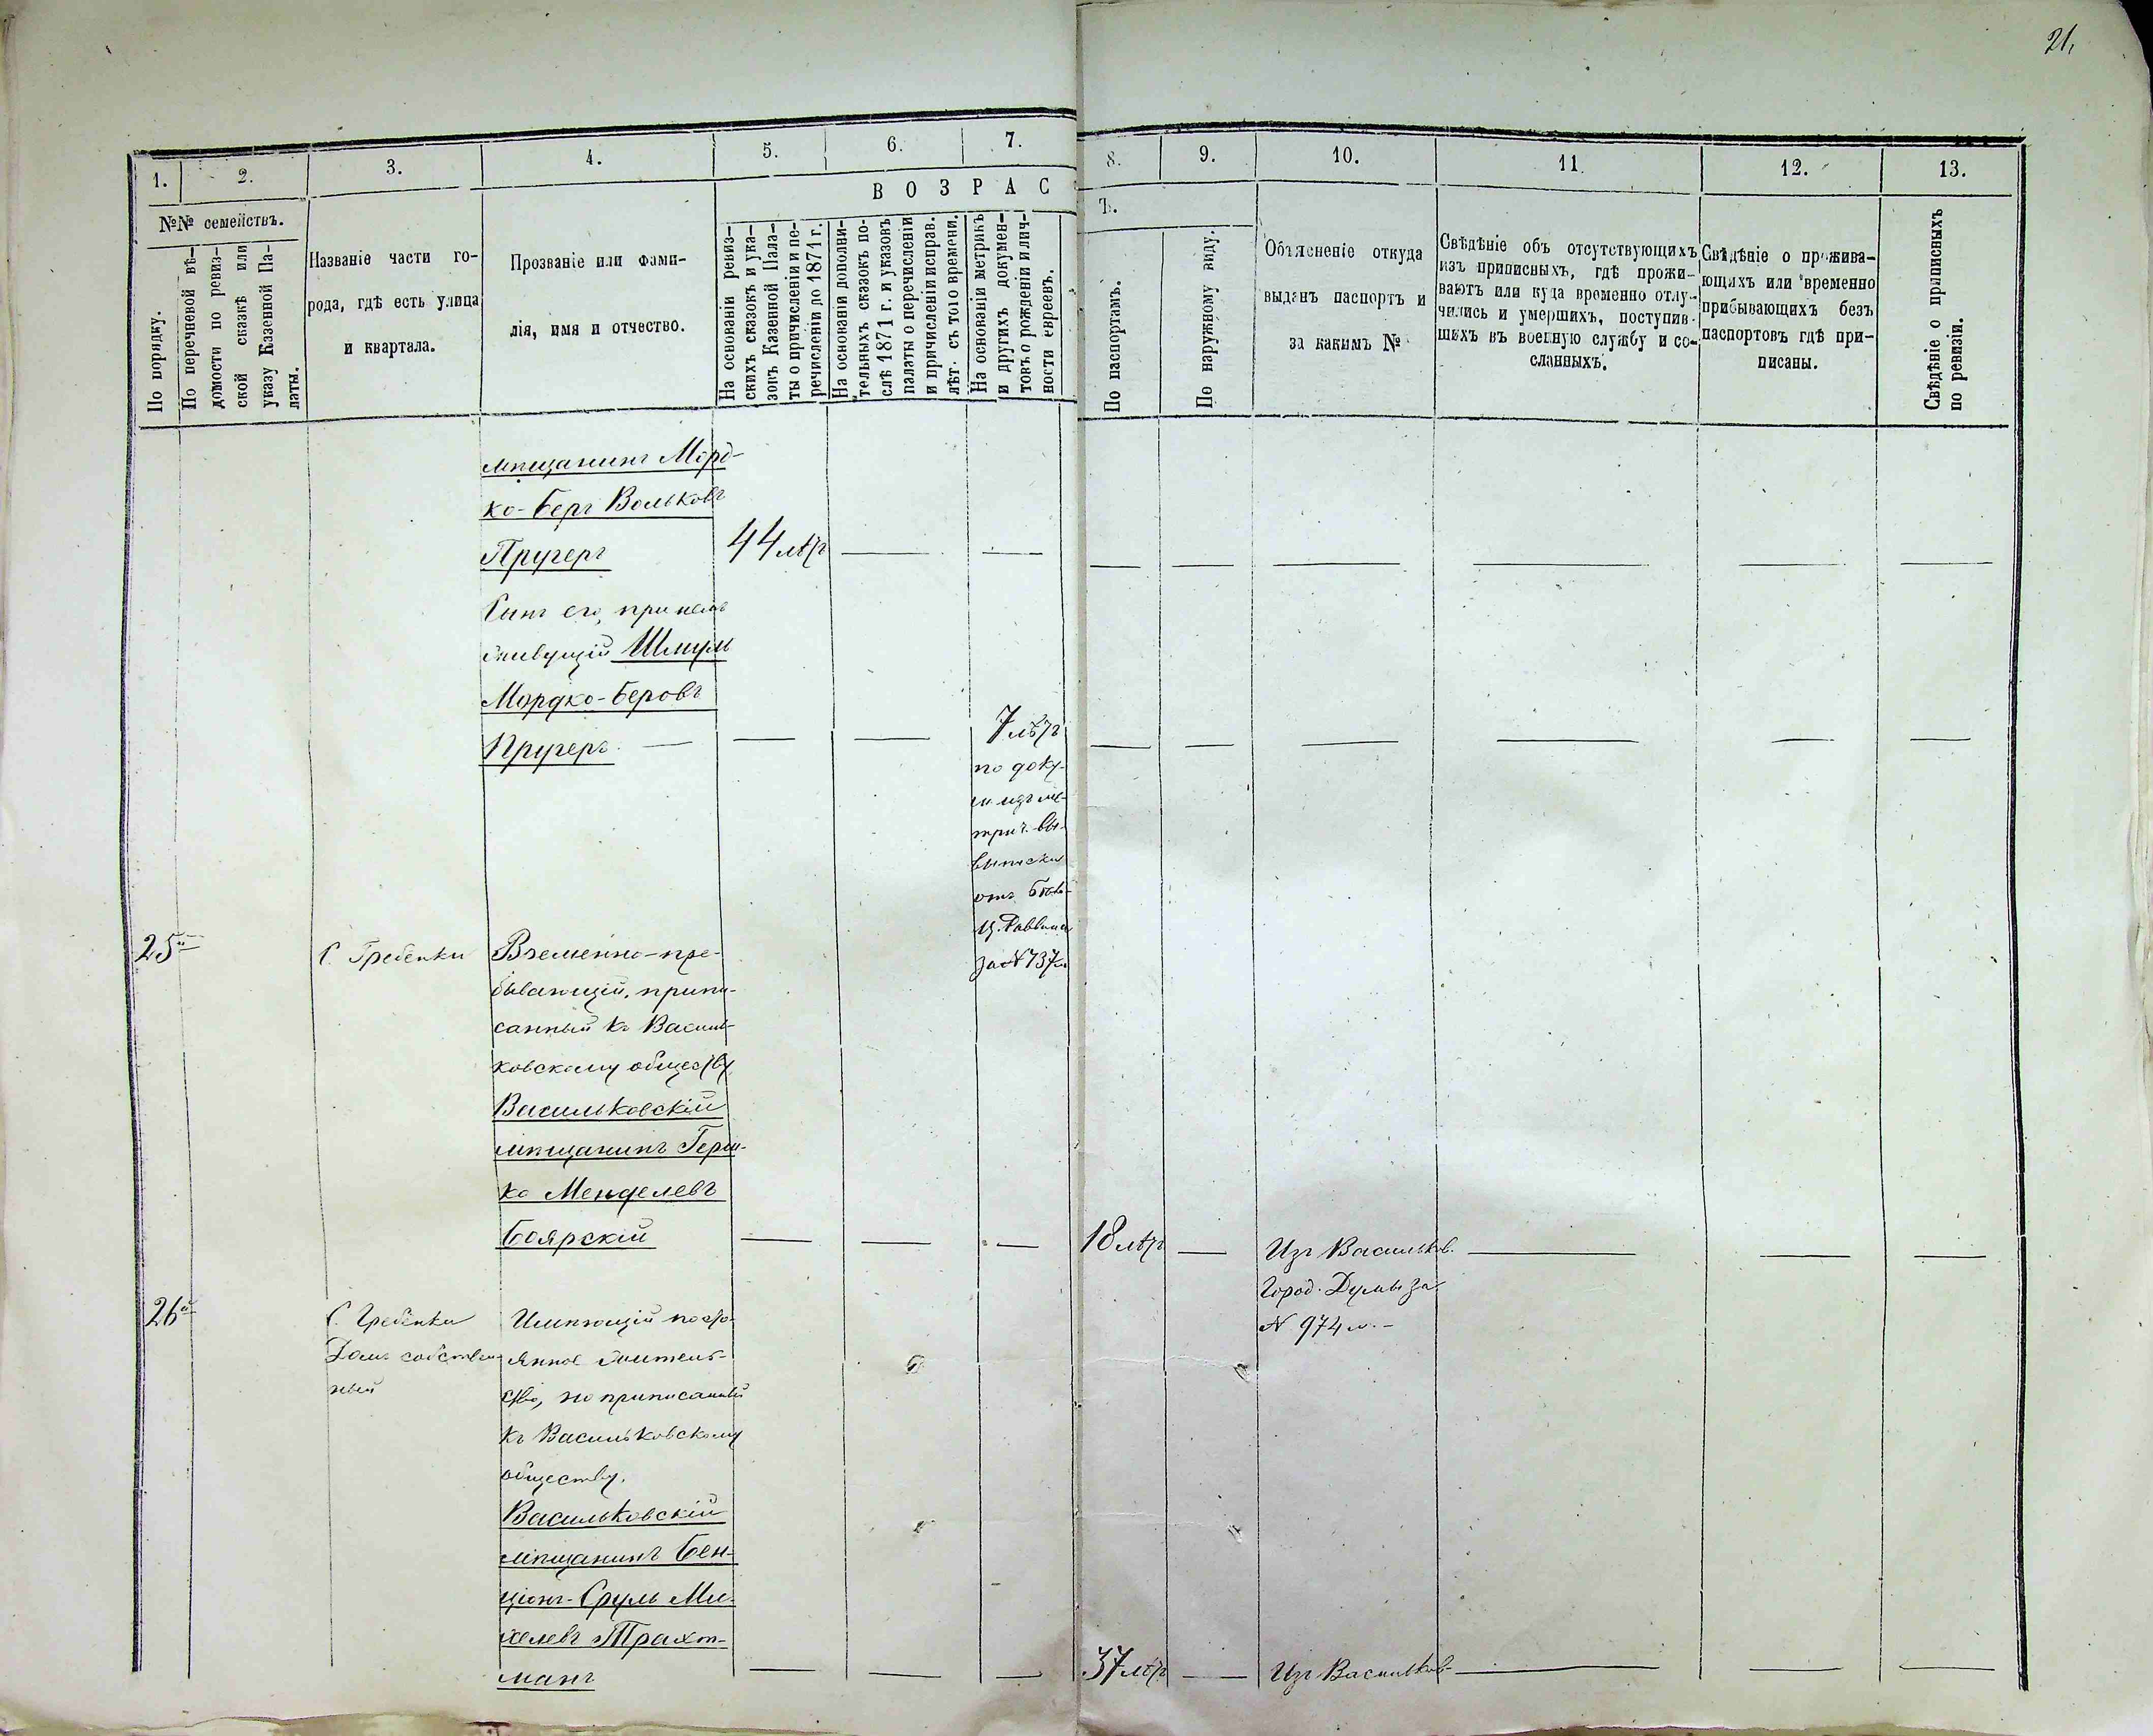 21,
1.
2.
3.
4.
5.
6.
7.
8.
9.
10.
11.
12.
13.
№№ семействъ.
По порядку.
По перечневой вѣ-
домости по ревиз-
ской сказкѣ или
указу Казенной Па-
латы.
Названіе части го-
рода, гдѣ есть улица
и квартала.
Прозваніе или фами-
лія, имя и отчество.
В О З Р А С
Т.
На основаніи ревиз-
скихъ сказокъ и ука-
зовъ Казенной Пала-
ты о причисленіи и пе-
речисленіи до 1871 г.
На основаніи дополни-
тельныхъ сказокъ по-
слѣ 1871 г. и указовъ
палаты о перечисленіи
и причисленіи исправ.
лѣт. съ того времени.
На основаніи метрикъ
и другихъ докумен-
товъ о рожденіи и лич-
ности евреевъ.
По паспортамъ.
По наружному виду.
Объясненіе откуда
выданъ паспортъ и
за какимъ №
Свѣдѣніе объ отсутствующихъ
изъ приписныхъ, гдѣ прожи-
ваютъ или куда временно отлу-
чились и умершихъ, поступив-
шихъ въ военную службу и со-
сланныхъ.
Свѣдѣніе о прожива-
ющихъ или временно
прибывающихъ безъ
паспортовъ гдѣ при-
писаны.
Свѣдѣніе о приписныхъ
по ревизіи.
мѣщанинъ Морд-
ко-Беръ Вольковъ
Пругеръ 44 лѣтъ
Сынъ его, при немъ
живущій Шмуль
Мордко-Беровъ
Пругеръ 7 лѣтъ
по доку-
изъ ме-
трич. вы-
выписки
отъ Бѣло-
ц. Раввина
за № 737м
25й С. Гребенки Временно-пре-
бывающій, припи-
санный къ Василь-
ковскому обществу
Васильковскій
мѣщанинъ Герш-
ко Менделевъ
Боярскій 18 лѣтъ Изъ Васильков.
Город. Думы за
№ 974м.
26й С. Гребенки Имѣющій посто-
Домъ собствен- янное житель-
ный ство, но приписанный
къ Васильковскому
обществу.
Васильковскій
мѣщанинъ Бен-
ціонъ-Сруль Ми-
хелевъ Трахт-
манъ 37 лѣтъ Изъ Васильков-